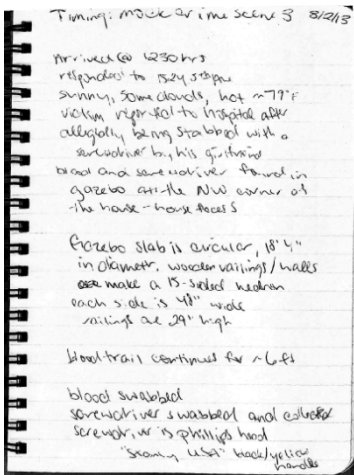 Timing: mock crime scene 3 8/2/13
Arrived @ 1230 hrs
responded to 1524 5th Ave
sunny, some clouds, hot ~79°F
victim reported to hospital after
allegidly being stabbed with a
screwdriver by his girlfriend
blood and screwdriver found in
gazebo at the NW corner of
the house - house faces S
Gazebo slab is circular, 18' 4"
in diameter. wooden railings/walls
make a 15-sided
each side is 48" wide
railings are 29" high
blood trail continues for ~6ft
blood swabbed
screwdriver swabbed and collected
screwdriver is phillips head
USA" black/yellow
handle